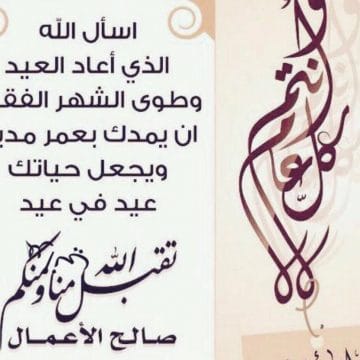 اسأل الله
الذي أعاد العيد
وطوى الشهر الفق
ان يمدك بعمر مدي
ويجعل حياتك
عيد في عيد
تقبل الله منا ومنكم
صالح الأعمال
وأنتم
كل عام